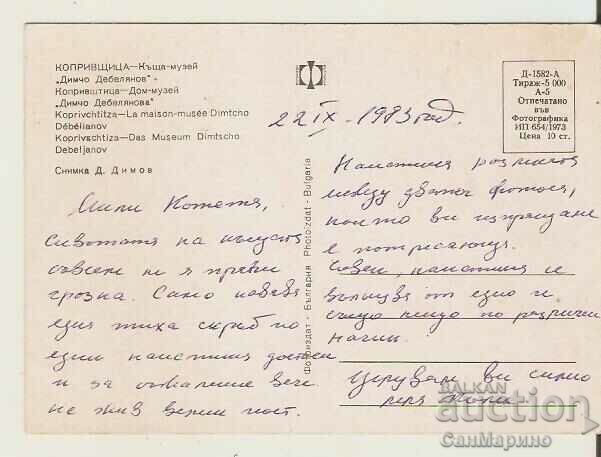 КОПРИВЩИЦА—Къща-музей
„Димчо Дебелянов“ -
Копривштица—Дом-музей
„Димчо Дебелянова“
Koprivchtitza—La maison-musée Dimtcho
Débélianov
Koprivschtiza—Das Museum Dimtscho
Debeljanov
Снимка Д. Димов
Д-1582-А
Тираж-5 000
А-5
Отпечатано
във
Фотографика
ИП 654/1973
Цена 10 ст.
Фотоиздат - България Photoizdat - Bulgaria
22 IX - 1983 год.
Мили Котета,
сивотата на
съвсем не я прави
грозна. Само навява
една тиха скръб по
един наистина достоен
и за съжаление вече
не жив верен гост.
Наистина разликата
между двата фотоса,
които ви изпращаме
е потресающа.
Човек наистина се
от едно и
също нещо по различен
начин.
Целувам ви силно
BALKAN
auction
СанМарино